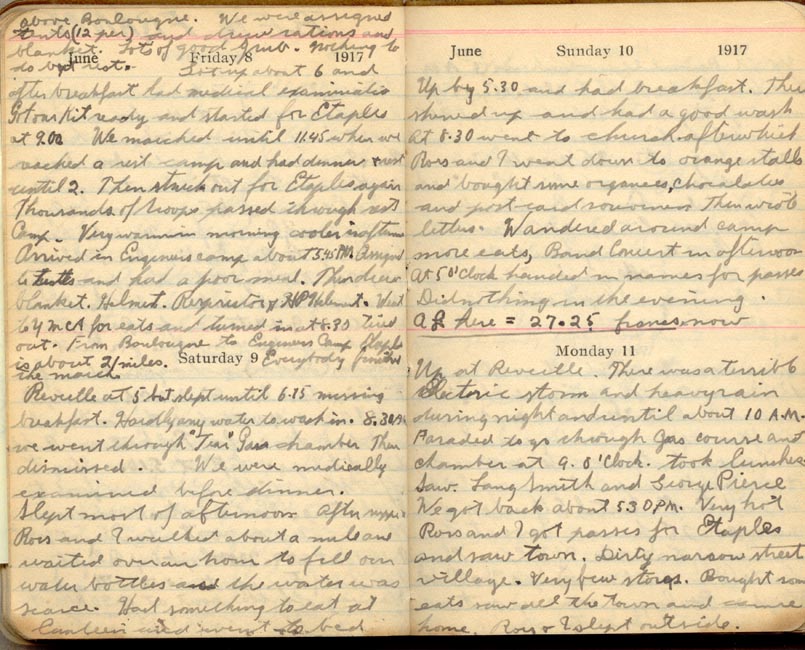 above Boulougne. We were assigned
tents (12 per) and drew rations and
blanket. Lots of good grub. Nothing to
do but rest.
June Friday 8 1917
Got up about 6 and
after breakfast had medical examination
Got our Kit ready and started for Etaples
at 9.00 We marched until 11.45 when we
reached a rest camp and had dinner & rest
until 2. Then struck out for Etaples again
Thousands of troops passed through rest
Camp. Very warm in morning cooler in aftern
Arrived in Engineers camp about 3.45 P.M. Assigned
to tents and had a poor meal. Then drew
blanket. Helmet. Respirator & P.H. Helmet. Went
to Y M C A for eats and turned in at 8.30 tired
out. From Boulougne to Engineers Camp Etaples
is about 21 miles. Everybody finished
the march
Saturday 9
Reveille at 5 but slept until 6.15 missing
breakfast. Hardly any water to wash in. 8.30
we went through "Tear" Gas chamber Then
dismissed. We were medically
examined before dinner.
Slept most of afternoon After supper
Ross and I walked about a mile and
waited over an hour to fill our
water bottles and the water was
scarce. Had something to eat at
Canteen and went to bed
June Sunday 10 1917
Up by 5.30 and had breakfast. Then
shaved up and had a good wash
At 8.30 went to church after which
Ross and I went down to orange stalls
and bought some organees, chocalates
and post card souvenirs Then wrote
letters. Wandered around camp
more eats, Band Concert in afternoon
At 5 O'Clock handed in names for passes
Did nothing in the evening.
= 27.25 francs now
Monday 11
Up at Reveille. There was a terrible
Electric storm and heavy rain
during night and until about 10 A.M.
Paraded to go through Gas course and
chamber at 9. O'Clock. took lunches
Saw. Lang Smith and George Pierce
We got back about 5.30 P.M. Very hot
Ross and I got passes for Etaples
and saw town. Dirty narrow street
village. Very few stores. Bought som
eats saw all the town and came
home. Ross & I slept outside.